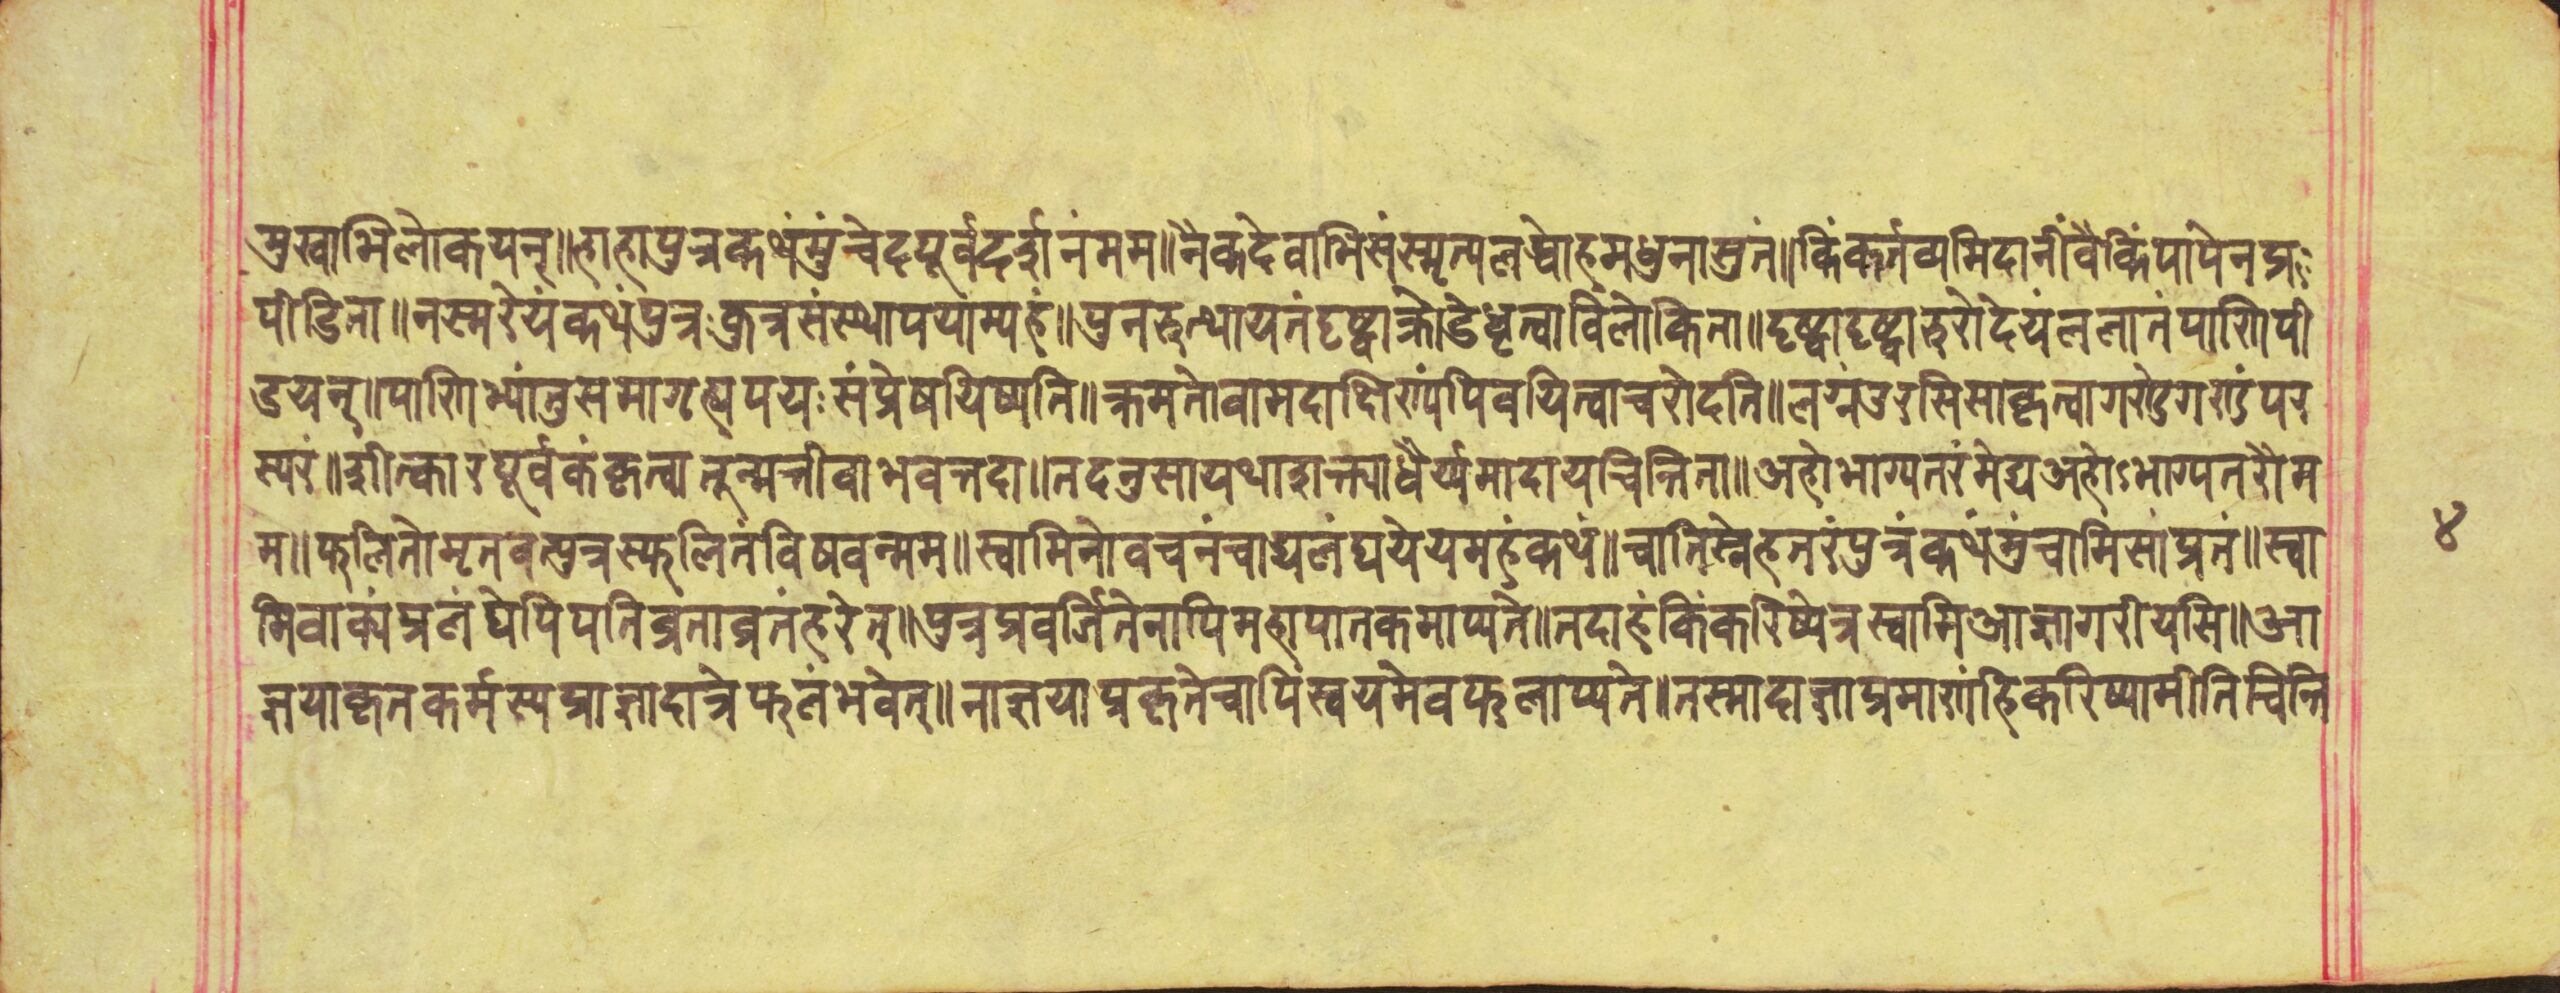 मुखाभिलोकयन्॥हाहापुत्रकथंमुंचेदपूर्वदर्शनंमम॥नैकदेवाभिसंस्मृत्यलब्धोहमधुनासुतं॥किंकर्तव्यमिदानींवैकिंपापेनप्रः
पीडिता॥नस्मरेयंकथंपुत्रःकुत्रसंस्थापयाम्यहं॥पुनरुत्थायतंदृष्ट्वाक्रोडेधृत्वाविलोकिता॥दृष्ट्वादृष्ट्वारुरोदेयंललातंपाणिपी
डयन्॥पाणिभ्यांतुसमागृह्यपयःसंप्रेषयिष्यति॥क्रमतोवामदाक्षिण्यंपिवयित्वाचरोदति॥लग्नंउरसिसाकृत्वागण्डेगण्डंपर
स्परं॥शीत्कारपूर्वकंकृत्वातून्मत्तीवाभवत्तदा॥तदनुसायथाशक्त्याधैर्य्यमादायचिन्तिता॥अहोभाग्यतरंमेद्यअहोऽभाग्यतरोम
म॥फलितोमृतवत्पुत्रस्फलितंविषवन्मम॥स्वामिनोवचनंचाद्यलंघयेयमहंकथं॥चातिस्नेहतरंपुत्रंकथंमुंचामिसांप्रतं॥स्वा
मिवाक्यंप्रलंघेपिपतिब्रताब्रतंहरेत्॥पुत्रप्रवर्जितेनापिमहापातकमाप्यते॥तदाहंकिंकरिष्येत्रस्वामिआज्ञागरीयसि॥आ
ज्ञयाकृतकर्मस्यप्राज्ञादात्रेफलंभवेत्॥नाज्ञयाप्रकृतेचापिस्वयमेवफलाप्यते॥तस्मादाज्ञाप्रमाणंहिकरिष्यामीतिचिन्ति
४